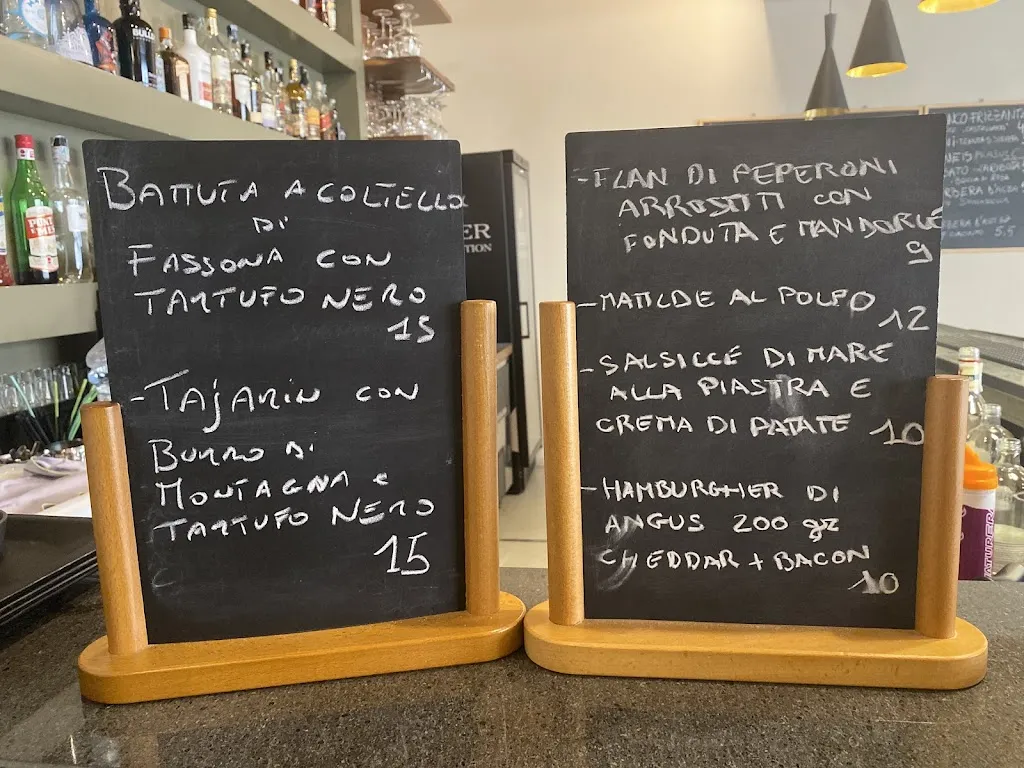 BATTUTA A COLTELLO
DI
FASSONA CON
TARTUFO NERO
15
- TAJARIN CON
BURRO DI
MONTAGNA E
TARTUFO NERO
15
- FLAN DI PEPERONI
ARROSTITI CON
FONDUTA E MANDORLE
9
- MATILDE AL POLPO
12
- SALSICCE DI MARE
ALLA PIASTRA E
CREMA DI PATATE
10
- HAMBURGHER DI
ANGUS 200 gr
CHEDDAR + BACON
10
5.5